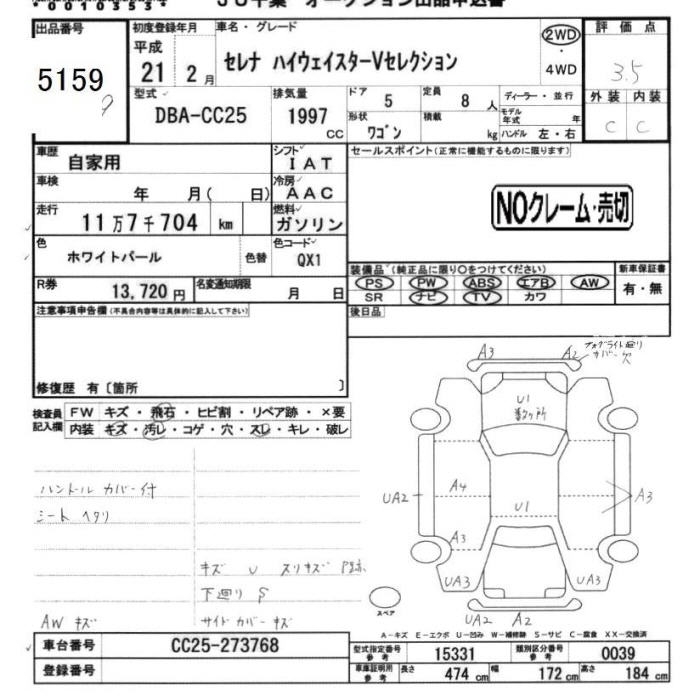 ＪＵ千葉 オークション出品申込書
00103534
出品番号
5159
初度登録年月
平成
21 2 月
車名・グレード
セレナ ハイウェイスターVセレクション
2WD
・
4WD
評価点
3.5
外装 内装
C C
型式
DBA-CC25
排気量
1997
CC
ドア
5
定員
8 人
ディーラー・並行
モデル年式 年
形状
ワゴン
積載
kg
ハンドル 左・右
車歴
自家用
シフト
IAT
セールスポイント(正常に機能するものに限ります)
車検
年 月( 日)
冷房
AAC
NOクレーム・売切
走行
11万7千704 km
燃料
ガソリン
色
ホワイトパール
色替
色コード
QX1
R券
13,720 円
名変通知期限
月 日
装備品(純正品に限り○をつけてください)
PS PW ABS エアB AW
SR ナビ TV カワ
新車保証書
有・無
注意事項申告欄(不具合内容等は具体的に記入して下さい)
後日品
修復歴 有〔箇所 〕
検査員記入欄
FW キズ・飛石・ヒビ割・リペア跡・×要
内装 キズ・汚レ・コゲ・穴・スレ・キレ・破レ
フォグライト廻り
カバー欠
A3
A2
U1
数ヶ所
UA2
A4
U1
A3
A3
UA3
UA3
UA2 A2
スペア
ハンドル カバー付
シート ヘタリ
キズ U スリキズ P跡
下廻り S
AW キズ
サイドカバー キズ
A-キズ E-エクボ U-凹み W-補修跡 S-サビ C-腐食 XX-交換済
車台番号
CC25-273768
登録番号
型式指定番号
参考
15331
類別区分番号
参考
0039
車庫証明用
参考
長さ
474 cm
幅
172 cm
高さ
184 cm